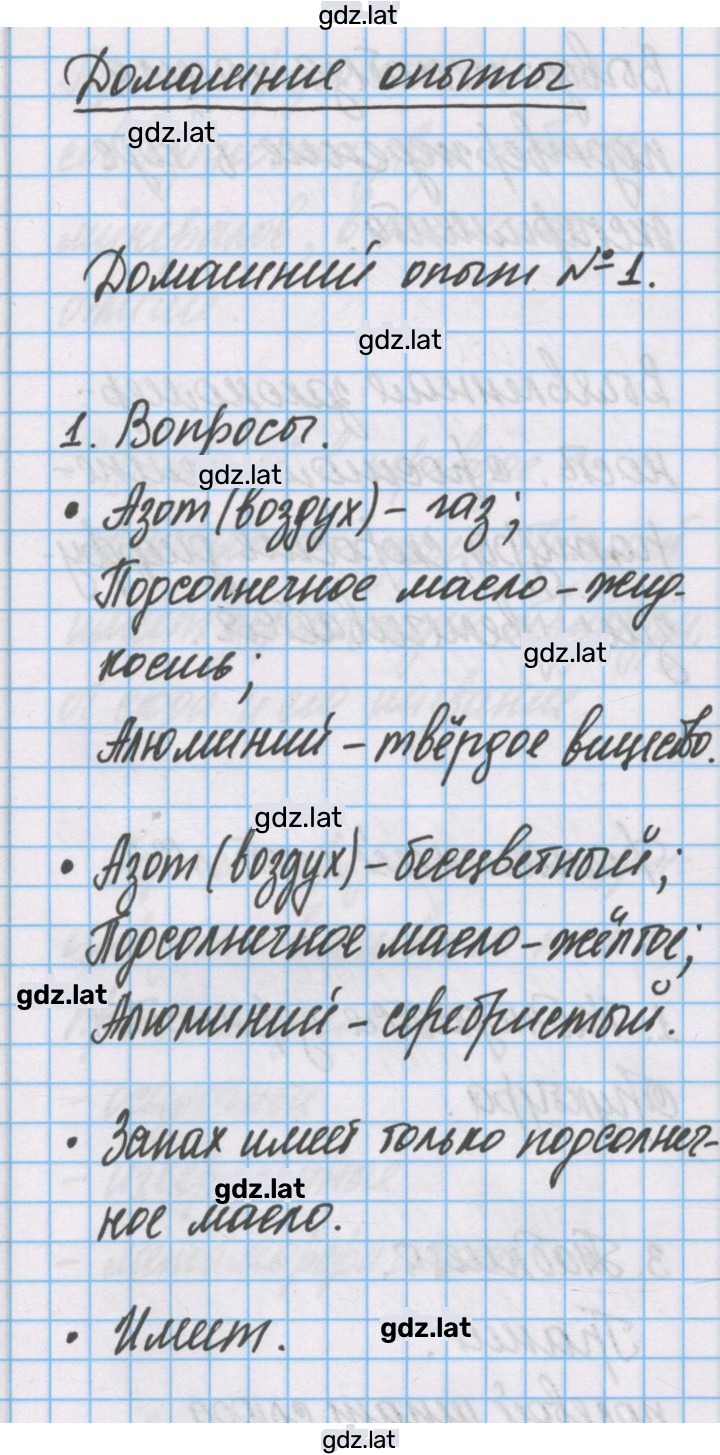 gdz.lat
Домашние опыты
gdz.lat
Домашний опыт №1.
gdz.lat
1. Вопросы.
gdz.lat
• Азот (воздух) – газ;
Подсолнечное масло – жид-
gdz.lat
кость;
Алюминий – твёрдое вищество.
gdz.lat
• Азот (воздух) – бесцветный;
Подсолнечное масло – жёлтое;
gdz.lat
Алюминий – серебристый.
• Запах имеет только подсолнеч-
gdz.lat
ное масло.
• Имеет.
gdz.lat
gdz.lat